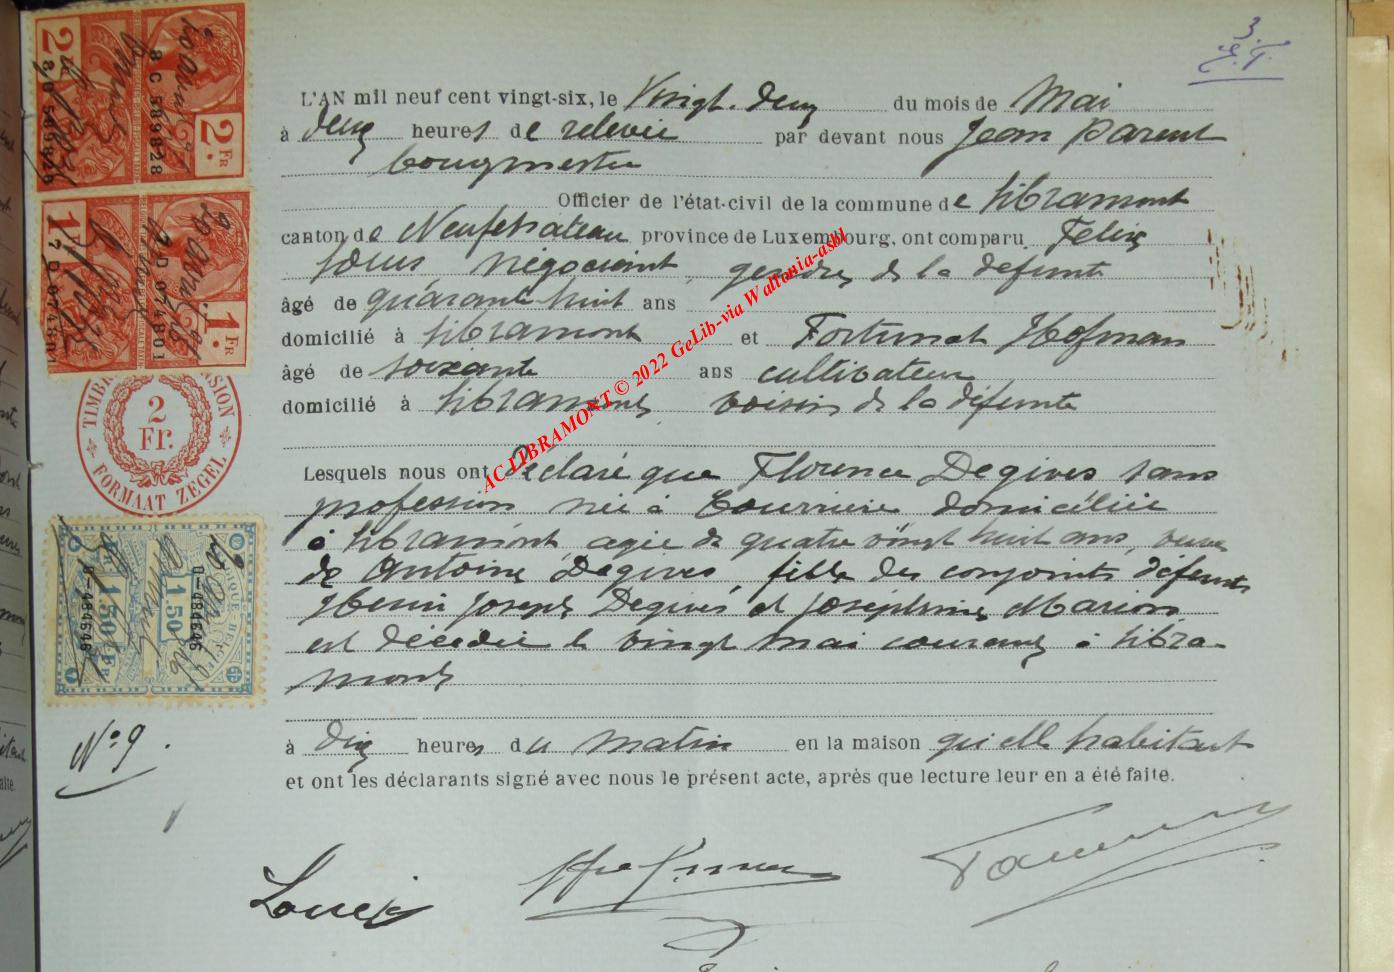 3.
L'AN mil neuf cent vingt-six, le Vingt-deux du mois de Mai
à deux heures de relevée par devant nous Jean Parent
bourgmestre
Officier de l'état-civil de la commune de Libramont
canton de Neufchateau province de Luxembourg, ont comparu Félix
Louis, négociant, gendre de la défunte
âgé de quarante huit ans
domicilié à Libramont et Fortunat Hofman
âgé de soixante ans cultivateur
domicilié à Libramont, voisin de la défunte
Lesquels nous ont déclaré que Florence Degives sans
profession née à Courrière domiciliée
à Libramont, agée de quatre vingt huit ans, veuve
de Antoine Degives, fille des conjoints défunts
Henri Joseph Degives et Joséphine Marion
est décédée le vingt mai courant à Libra-
mont
à dix heures du matin en la maison qu'elle habitait
et ont les déclarants signé avec nous le présent acte, après que lecture leur en a été faite.
N° 9.
2 FR
8 C 589828
1 FR
7 D 074801
2 Fr.
FORMAAT ZEGEL
1.50
0-484646
AC LIBRAMONT © 2022 GeLib-via Wallonia-asbl